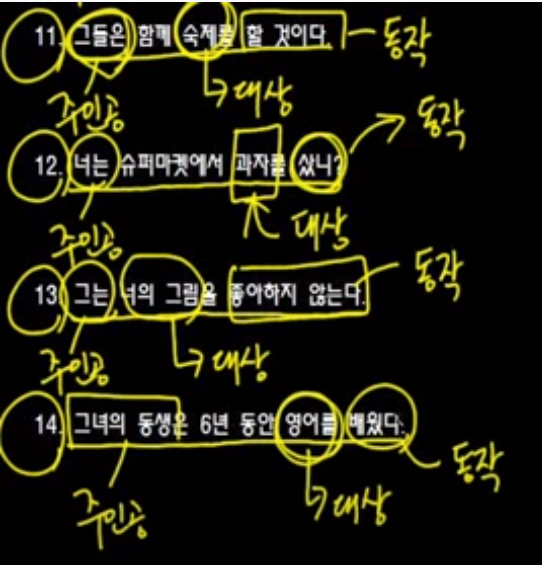 11. 그들은 함께 숙제를 할 것이다. 동작
주인공 대상
12. 너는 슈퍼마켓에서 과자를 샀니? 동작
주인공 대상
13. 그는 너의 그림을 좋아하지 않는다. 동작
주인공 대상
14. 그녀의 동생은 6년 동안 영어를 배웠다. 동작
주인공 대상